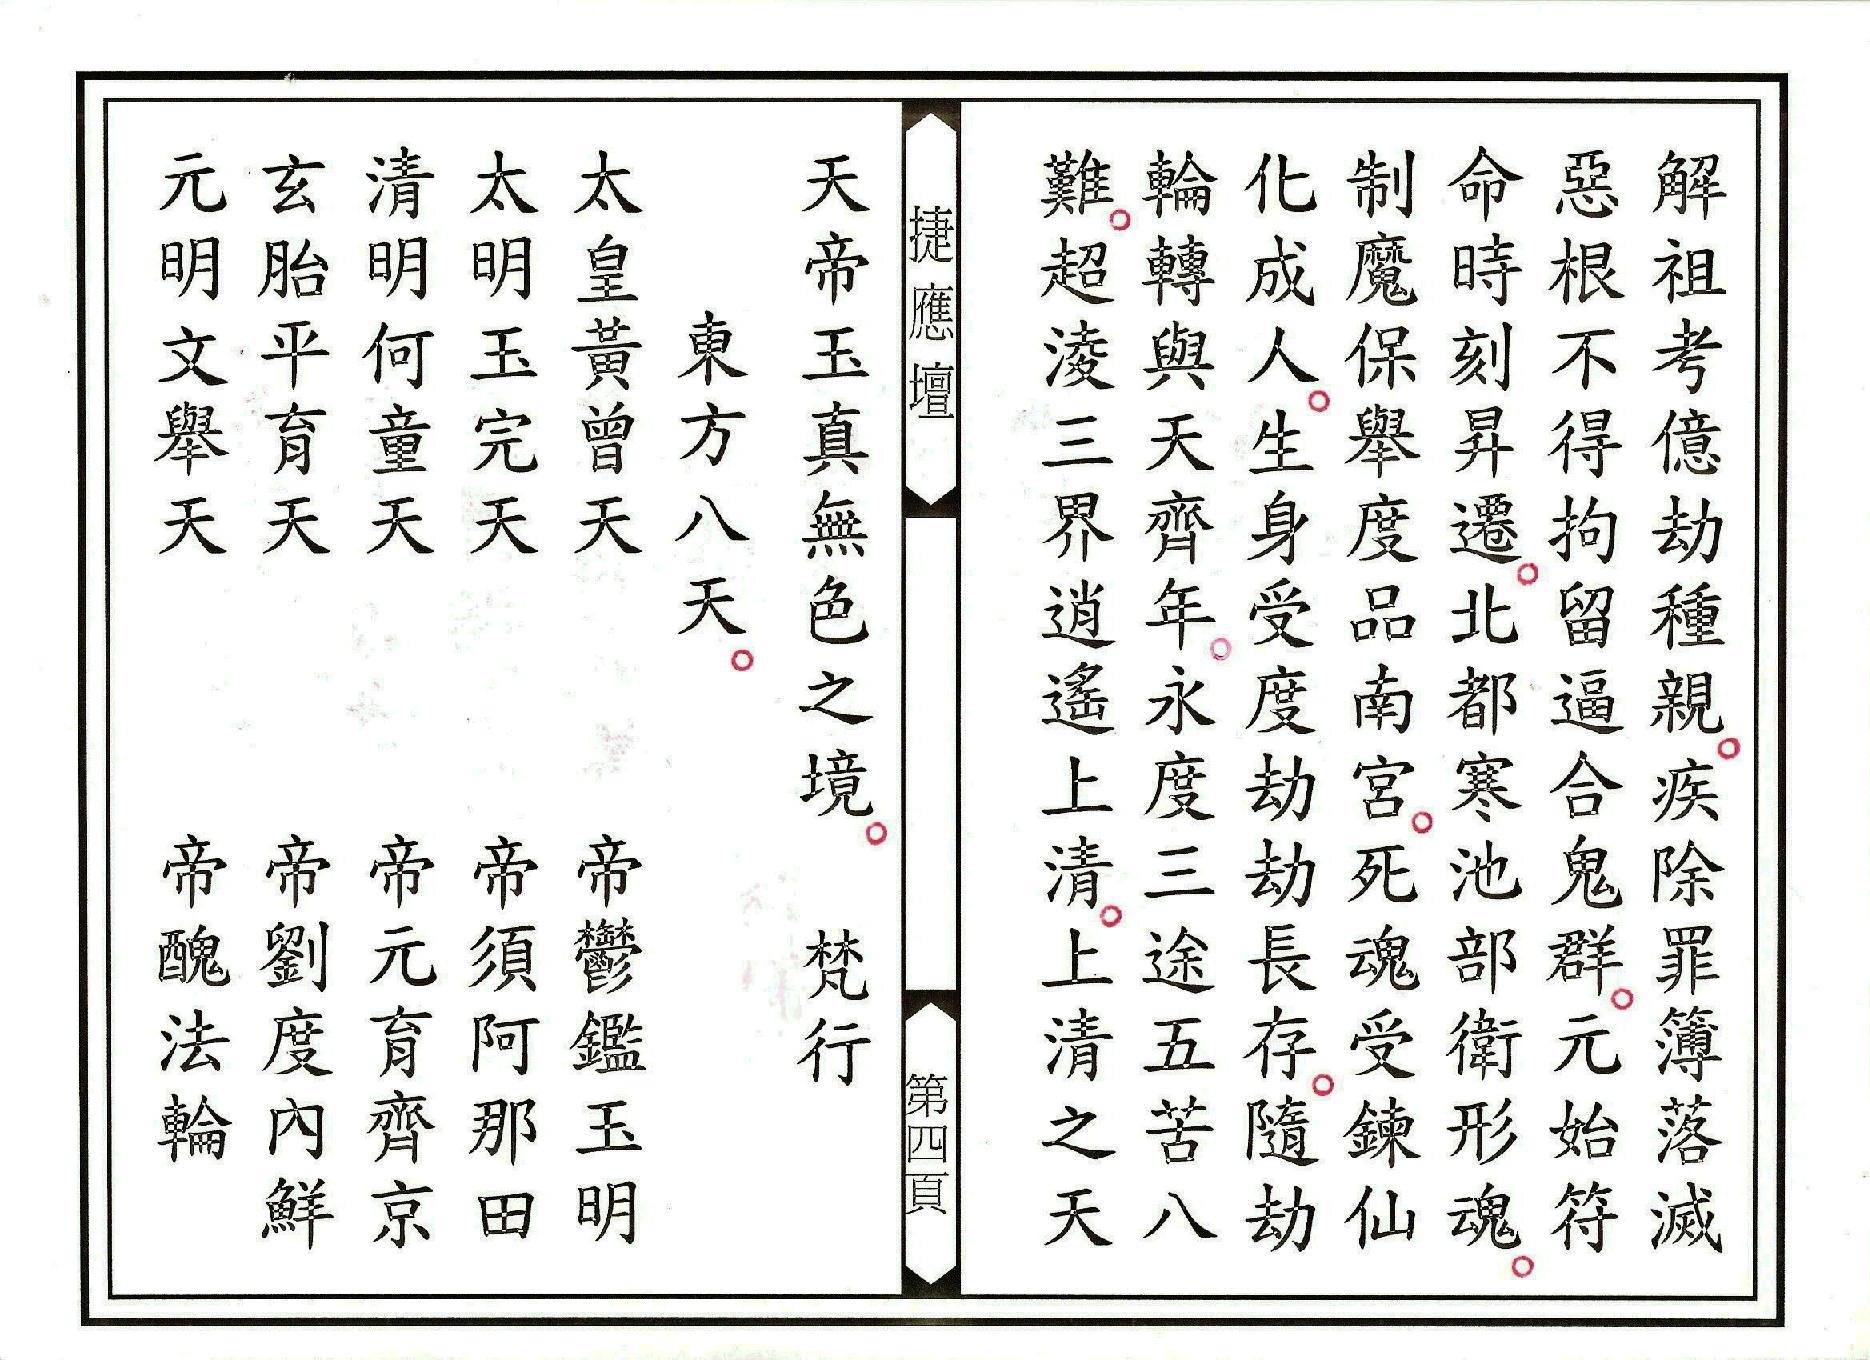 解祖考億劫種親。疾除罪簿落滅
惡根不得拘留逼合鬼群。元始符
命時刻昇遷。北都寒池部衛形魂。
制魔保舉度品南宮。死魂受鍊仙
化成人。生身受度劫劫長存。隨劫
輪轉與天齊年。永度三途五苦八
難。超淩三界逍遙上清。上清之天
捷應壇
第四頁
天帝玉真無色之境。 梵行
東方八天。
太皇黃曾天 帝鬱鑑玉明
太明玉完天 帝須阿那田
清明何童天 帝元育齊京
玄胎平育天 帝劉度內鮮
元明文舉天 帝醜法輪